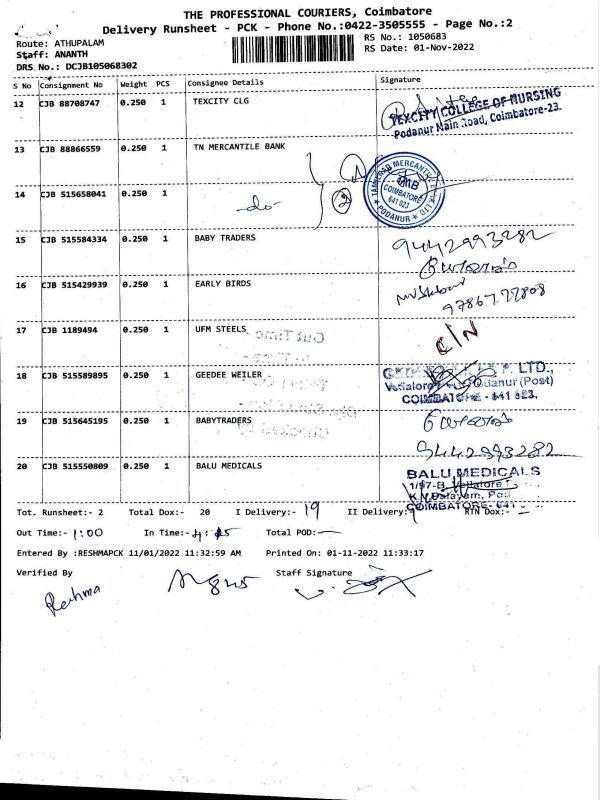 THE PROFESSIONAL COURIERS, Coimbatore
Delivery Runsheet - PCK - Phone No.:0422-3505555 - Page No.:2
Route: ATHUPALAM
RS No.: 1050683
Staff: ANANTH
RS Date: 01-Nov-2022
DRS No.: DCJB105068302
S No Consignment No Weight PCS Consignee Details Signature
12 CJB 88708747 0.250 1 TEXCITY CLG
TEXCITY COLLEGE OF NURSING
Podanur Main Road, Coimbatore-23.
13 CJB 88866559 0.250 1 TN MERCANTILE BANK
14 CJB 515658041 0.250 1 -do- 2
TAMILNAD MERCANTILE BANK LTD
TMB
COIMBATORE
641 023
* PODANUR *
15 CJB 515584334 0.250 1 BABY TRADERS 9442993282
16 CJB 515429939 0.250 1 EARLY BIRDS
17 CJB 1189494 0.250 1 UFM STEELS C/N
Out Time
18 CJB 515589895 0.250 1 GEEDEE WEILER
LTD.,
(Post)
COIMBATORE - 641 023.
19 CJB 515645195 0.250 1 BABYTRADERS
9442993282
20 CJB 515550809 0.250 1 BALU MEDICALS
BALU MEDICALS
1/97-B, Vellalore
COIMBATORE- 641
Tot. Runsheet:- 2 Total Dox:- 20 I Delivery:- 19 II Delivery: RTN Dox:- -
Out Time:- 1:00 In Time:- Total POD:-
Entered By :RESHMAPCK 11/01/2022 11:32:59 AM Printed On: 01-11-2022 11:33:17
Verified By Staff Signature
Reshma